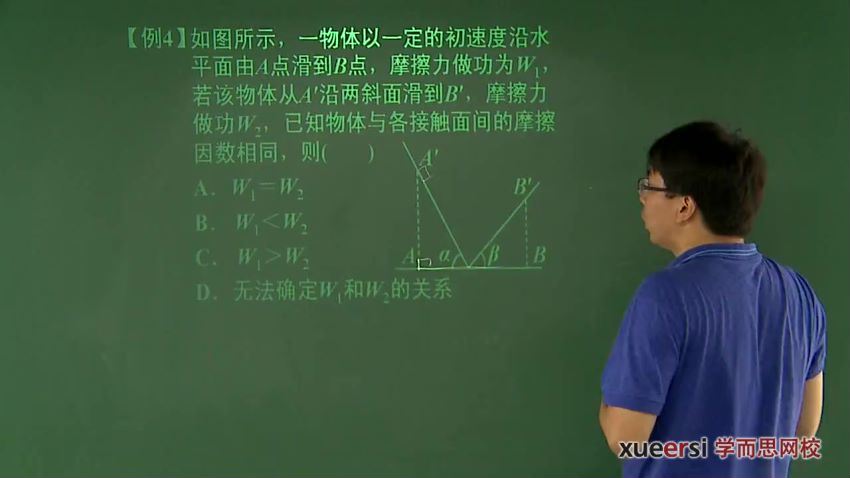 【例4】如图所示，一物体以一定的初速度沿水
平面由A点滑到B点，摩擦力做功为W₁，
若该物体从A′沿两斜面滑到B′，摩擦力
做功W₂，已知物体与各接触面间的摩擦
因数相同，则(　　)
A′
B′
A．W₁＝W₂
B．W₁＜W₂
C．W₁＞W₂
A α β B
D．无法确定W₁和W₂的关系
xueersi 学而思网校